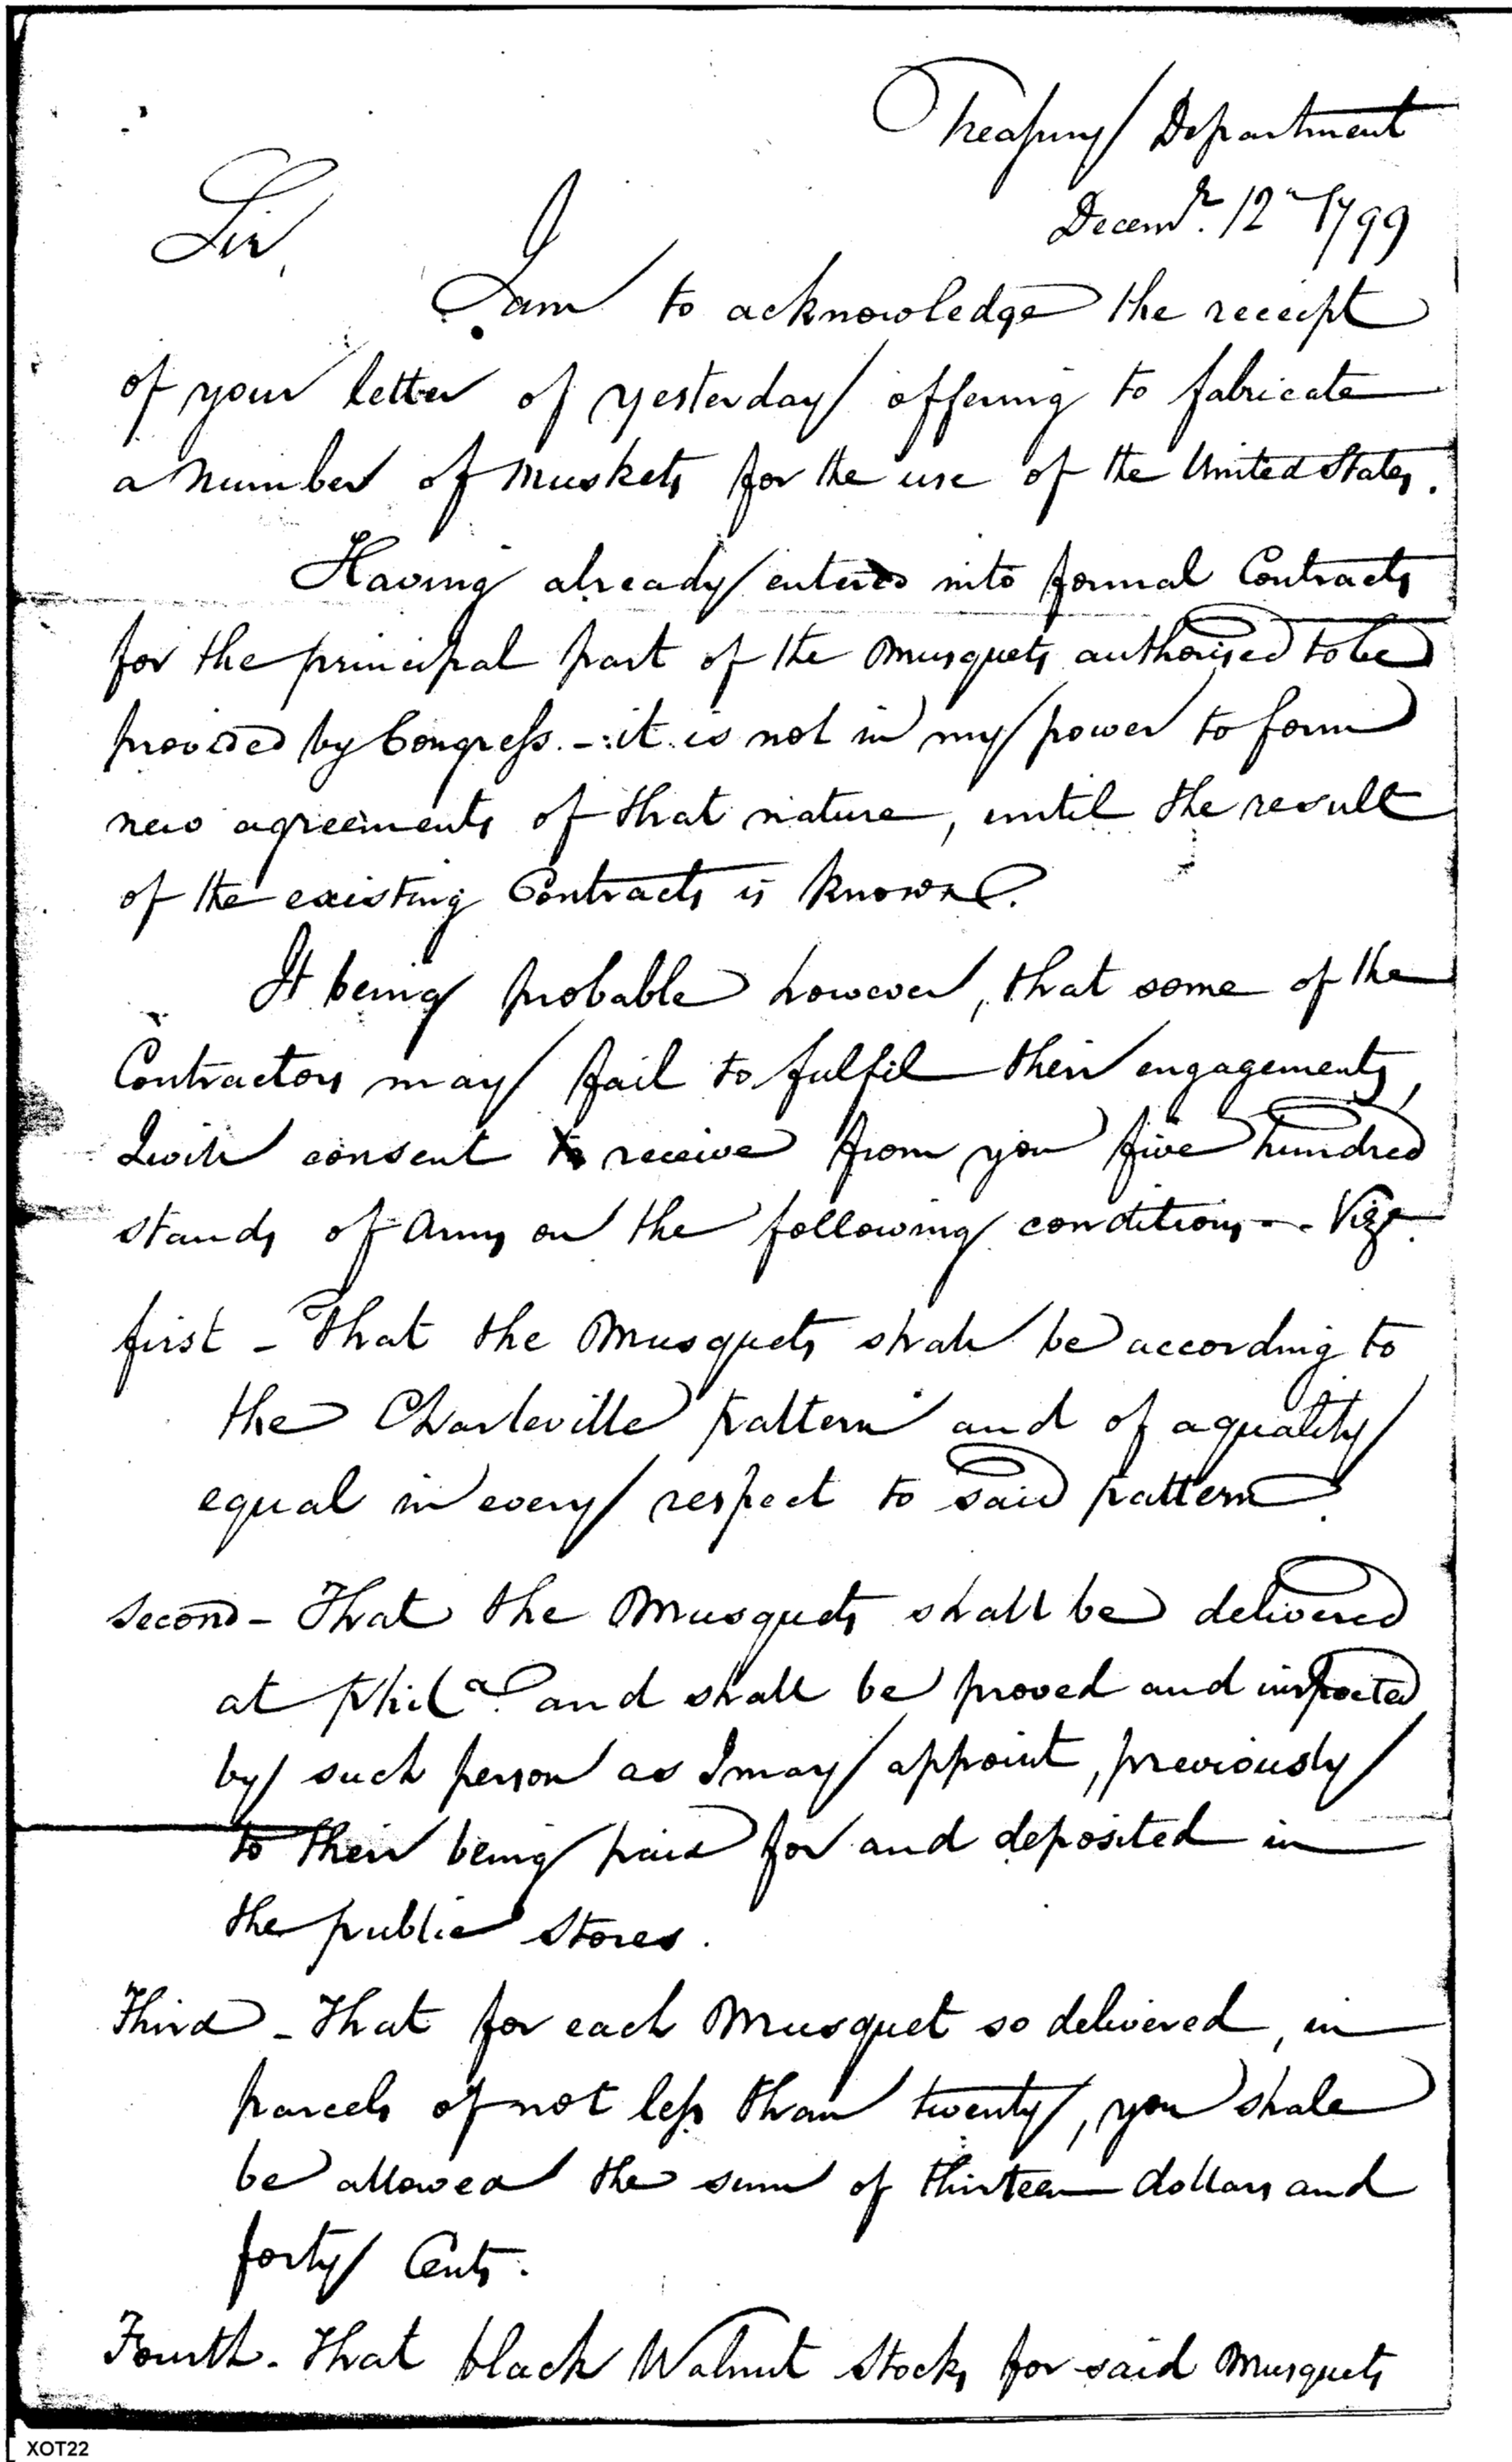 Treasury Department
Decemr. 12th 1799
Sir,
I am to acknowledge the receipt
of your letter of yesterday offering to fabricate
a number of muskets for the use of the United States.
Having already entered into formal Contracts
for the principal part of the Musquets authorised to be
provided by Congress. - it is not in my power to form
new agreements of that nature, until the result
of the existing Contracts is known.
It being probable however, that some of the
Contractors may fail to fulfil their engagements,
I will consent to receive from you five hundred
stands of Arms on the following conditions - Vizt.
first - That the Musquets shall be according to
the Charleville pattern and of a quality
equal in every respect to said pattern.
Second - That the Musquets shall be delivered
at Phila. and shall be proved and inspected
by such person as I may appoint, previously
to their being paid for and deposited in
the public Stores.
Third - That for each Musquet so delivered, in
parcels of not less than twenty, you shall
be allowed the sum of thirteen dollars and
forty Cents.
Fourth - That black Walnut Stocks for said Musquets
XOT22